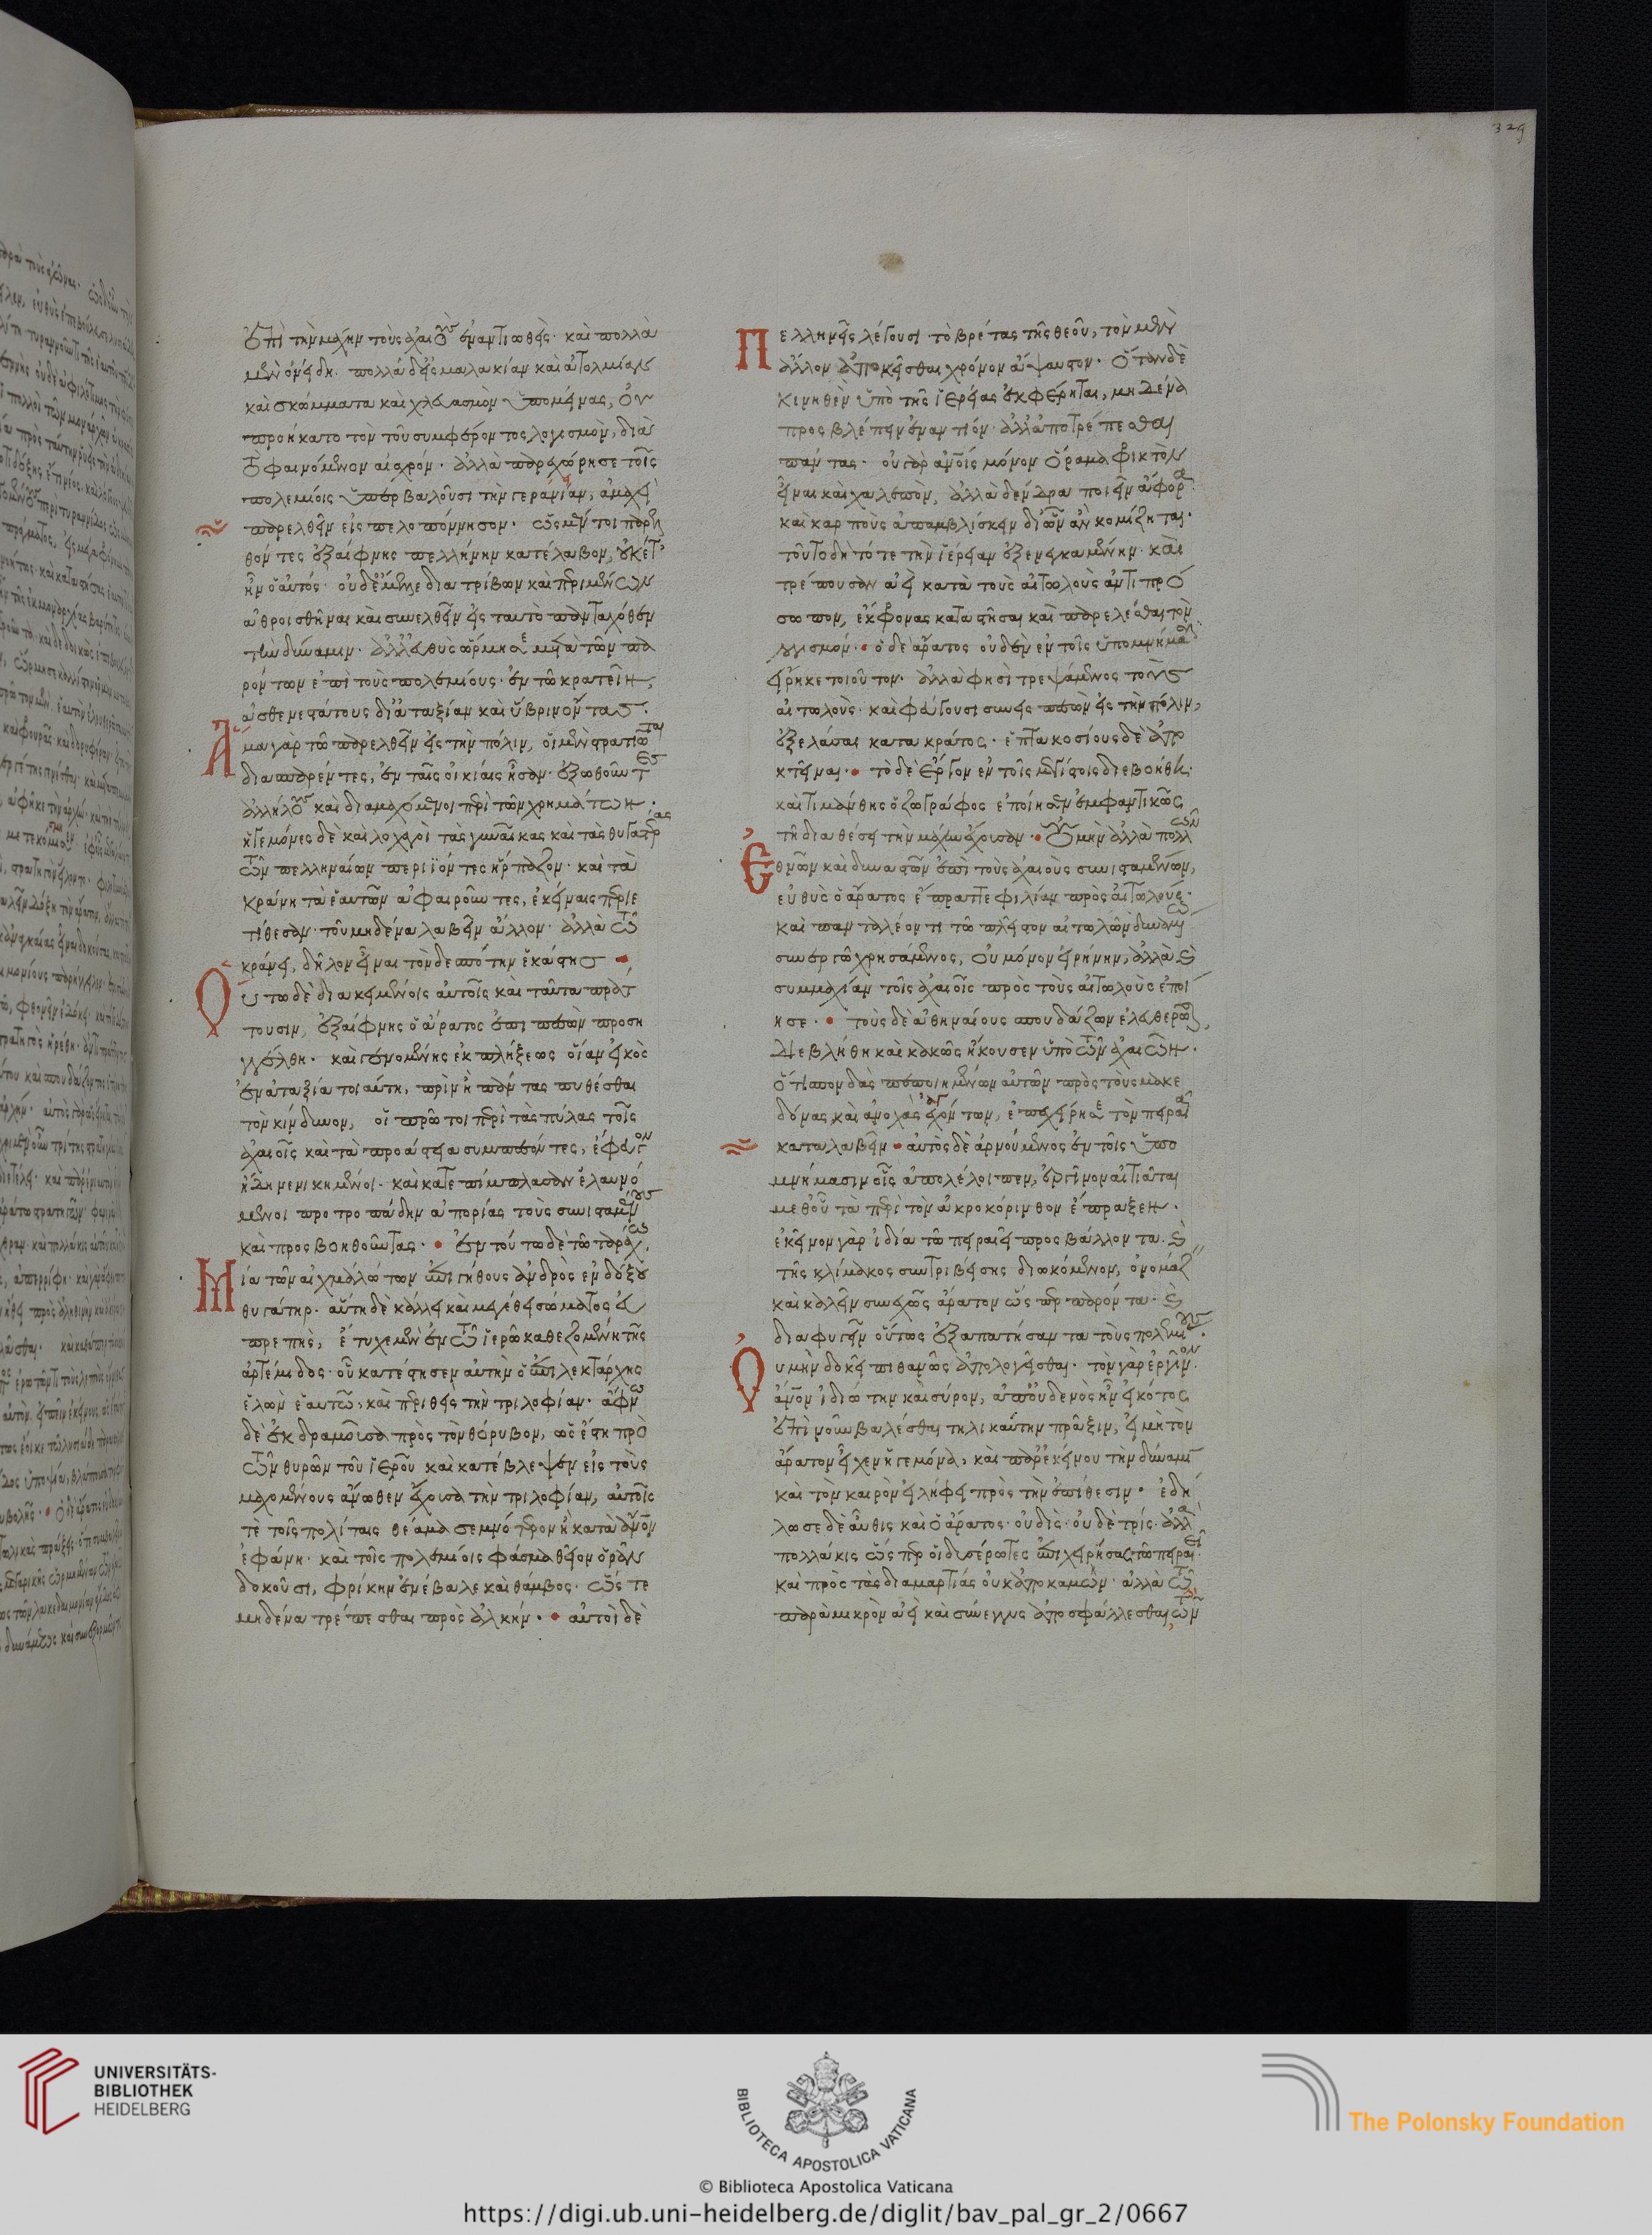 ἐπὶ τὴν μάχην τοὺς ἀχαιοὺς ἐναντιωθεὶς· καὶ πολλὰ
μὲν ὀνείδη· πολλὰ δ' εἰς μαλακίαν καὶ ἀτολμίαν
καὶ σκώμματα καὶ χλευασμὸν ὑπομείνας, οὐ
προήκατο τὸν τοῦ συμφέροντος λογισμὸν, διὰ
τὸ φαινόμενον αἰσχρόν· ἀλλὰ παρεχώρησε τοῖς
πολεμίοις ὑπερβαλοῦσι τὴν γεράνειαν, ἀμαχεὶ
παρελθεῖν εἰς πελοπόννησον· ὡς μέντοι παρελ
θόντες ἐξαίφνης πελλήνην κατέλαβον, οὐκέτ'
ἦν ὁ αὐτός· οὐδ' ἔμελλε διατρίβων καὶ περιμένων
ἀθροισθῆναι καὶ συνελθεῖν εἰς ταυτὸ πανταχόθεν
τὴν δύναμιν· ἀλλ' εὐθὺς ὥρμησε μετὰ τῶν πα
ρόντων ἐπὶ τοὺς πολεμίους· ἐν τῶ κρατεῖν,
ἀσθενεστάτους δι' ἀταξίαν καὶ ὕβριν ὄντας·
Ἅμα γὰρ τῶ παρελθεῖν εἰς τὴν πόλιν, οἱ μὲν στρατιῶται
διασπαρέντες, ἐν ταῖς οἰκίαις ἦσαν· ἐξωθοῦντες
ἀλλήλους καὶ διαμαχόμενοι περὶ τῶν χρημάτων·
ἡγεμόνες δὲ καὶ λοχαγοὶ τὰς γυναῖκας καὶ τὰς θυγατέρας
τῶν πελληναίων περιϊόντες ἥρπαζον· καὶ τὰ
κράνη τὰ ἑαυτῶν ἀφαιροῦντες, ἐκείναις περιε
τίθεσαν· τοῦ μηδένα λαβεῖν ἄλλον· ἀλλὰ τῶ
κράνει, δῆλον εἶναι τὸν δεσπότην ἑκάστης
Οὕτω δὲ διακειμένοις αὐτοῖς καὶ ταῦτα πράτ
τουσιν, ἐξαίφνης ὁ ἄρατος ἐπιπεσὼν προση
γγέλθη· καὶ γενομένης ἐκπλήξεως οἵαν εἰκὸς
ἐν ἀταξία τοιαύτη, πρὶν ἢ πάντας πυθέσθαι
τὸν κίνδυνον, οἱ πρῶτοι περὶ τὰς πύλας τοῖς
ἀχαιοῖς καὶ τὰ προάστεια συμπεσόντες, ἔφευγον
ἤδη νενικημένοι· καὶ κατεπίμπλασαν ἐλαυνό
μενοι προτροπάδην ἀπορίας τοὺς συνισταμένους
καὶ προσβοηθοῦντας· ἐν τούτω δὲ τῶ ταράχω
Μία τῶν αἰχμαλώτων ἐπιγήθους ἀνδρὸς ἐνδόξου
θυγάτηρ· αὕτη δὲ κάλλει καὶ μεγέθει σώματος εὐ
πρεπής, ἔτυχε μὲν ἐν τῶ ἱερῶ καθεζομένη τῆς
ἀρτέμιδος· οὗ κατέστησεν αὐτὴν ὁ ἐπιλεκτάρχης
ἑλὼν ἑαυτῶ, καὶ περιθεὶς τὴν τριλοφίαν· ἄφνω
δὲ ἐκδραμοῦσα πρὸς τὸν θόρυβον, ὡς ἔστη πρὸ
τῶν θυρῶν τοῦ ἱεροῦ καὶ κατέβλεψεν εἰς τοὺς
μαχομένους ἄνωθεν ἔχουσα τὴν τριλοφίαν, αὐτοῖς
τὲ τοῖς πολίταις θέαμα σεμνότερον ἢ κατὰ ἄνθρωπον
ἐφάνη· καὶ τοῖς πολεμίοις φάσμα θεῖον ὁρᾶν
δοκοῦσι, φρίκην ἐνέβαλε καὶ θάμβος· ὥς τε
μηδένα τρέπεσθαι πρὸς ἀλκήν· αὐτοὶ δὲ
Πελληνεῖς λέγουσι τὸ βρέτας τῆς θεοῦ, τὸν μὲν
ἄλλον ἀποκεῖσθαι χρόνον ἄψαυστον· ὅταν δὲ
κινηθὲν ὑπὸ τῆς ἱερείας ἐκφέρηται, μηδένα
προσβλέπειν ἐναντίον· ἀλλ' ἀποτρέπεσθαι
πάντας· οὐ γὰρ ἀνθρώποις μόνον ὅραμα φρικτὸν
εἶναι καὶ χαλεπὸν, ἀλλὰ δένδρα ποιεῖν ἄφορα
καὶ καρποὺς ἀπαμβλίσκειν δι' ὧν ἂν κομίζηται·
τοῦτο δὴ τότε τὴν ἱέρειαν ἐξενεγκαμένην· καὶ
τρέπουσαν ἀεὶ κατὰ τοὺς αἰτωλοὺς ἀντιπρό
σωπον, ἔκφρονας καταστῆσαι καὶ παρελέσθαι τὸν
λογισμόν· ὁ δὲ ἄρατος οὐδὲν ἐν τοῖς ὑπομνήμασιν
εἴρηκε τοιοῦτον· ἀλλὰ φησὶ τρεψάμενος τοὺς
αἰτωλοὺς· καὶ φεύγουσι συνεισπεσὼν εἰς τὴν πόλιν,
ἐξελάσαι κατακράτος· ἑπτακοσίους δὲ ἀπο
κτεῖναι· τὸ δὲ ἔργον ἐν τοῖς μεγίστοις διεβοήθη·
καὶ τιμάνθης ὁ ζωγράφος ἐποίησεν ἐμφαντικῶς
τῆ διαθέσει τὴν μάχην ἔχουσαν· Οὐ μὴν ἀλλὰ πολλῶν
Ἐθνῶν καὶ δυναστῶν ἐπὶ τοὺς ἀχαιοὺς συνισταμένων,
εὐθὺς ὁ ἄρατος ἔπραττε φιλίαν πρὸς αἰτωλούς·
καὶ πανταλέοντι τῶ πλεῖστον αἰτωλῶν δυναμένω
συνεργῶ χρησάμενος, οὐ μόνον εἰρήνην, ἀλλὰ καὶ
συμμαχίαν τοῖς ἀχαιοῖς πρὸς τοὺς αἰτωλοὺς ἐποί
ησε· τοὺς δὲ ἀθηναίους σπουδάζων ἐλευθερῶσαι,
διεβλήθη καὶ κακῶς ἤκουσεν ὑπὸ τῶν ἀχαιῶν·
ὅτι σπονδὰς πεποιημένων αὐτῶν πρὸς τοὺς μακε
δόνας, καὶ ἀνοχὰς ἀγόντων, ἐπεχείρησε τὸν πειραιᾶ
καταλαβεῖν· αὐτὸς δὲ ἀρνούμενος ἐν τοῖς ὑπο
μνήμασιν οἷς ἀπολέλοιπεν, ἐργῖνον αἰτιᾶται
μεθ' οὗ τὰ περὶ τὸν ἀκροκόρινθον ἔπραξεν·
ἐκεῖνον γὰρ ἰδία τῶ πειραιεῖ προσβάλλοντα· καὶ
τῆς κλίμακος συντριβείσης διωκόμενον, ὀνομάζειν
καὶ καλεῖν συνεχῶς ἄρατον ὥς περ παρόντα· καὶ
διαφυγεῖν οὕτως ἐξαπατήσαντα τοὺς πολεμίους·
Οὐ μὴν δοκεῖ πιθανῶς ἀπολογεῖσθαι· τὸν γὰρ ἐργῖνον
ἄνθρωπον ἰδιώτην καὶ σύρον, ἀπ' οὐδενὸς ἦν εἰκότος
ἐπὶ νοῦν βαλέσθαι τηλικαύτην πρᾶξιν, εἰ μὴ τὸν
ἄρατον εἶχεν ἡγεμόνα, καὶ παρ' ἐκείνου τὴν δύναμιν
καὶ τὸν καιρὸν εἰλήφει πρὸς τὴν ἐπίθεσιν· ἐδή
λωσε δὲ αὖθις καὶ ὁ ἄρατος· οὐ δὶς· οὐδὲ τρίς· ἀλλὰ
πολλάκις ὥς περ οἱ δυσέρωτες ἐπιχειρήσας τῶ πειραιεῖ·
καὶ πρὸς τὰς διαμαρτίας οὐκ ἀποκαμὼν· ἀλλὰ τῶ
παρὰ μικρὸν ἀεὶ καὶ σύνεγγυς ἀποσφάλλεσθαι τῶν
329
UNIVERSITÄTS-
BIBLIOTHEK
HEIDELBERG
BIBLIOTECA APOSTOLICA VATICANA
The Polonsky Foundation
© Biblioteca Apostolica Vaticana
https://digi.ub.uni-heidelberg.de/diglit/bav_pal_gr_2/0667